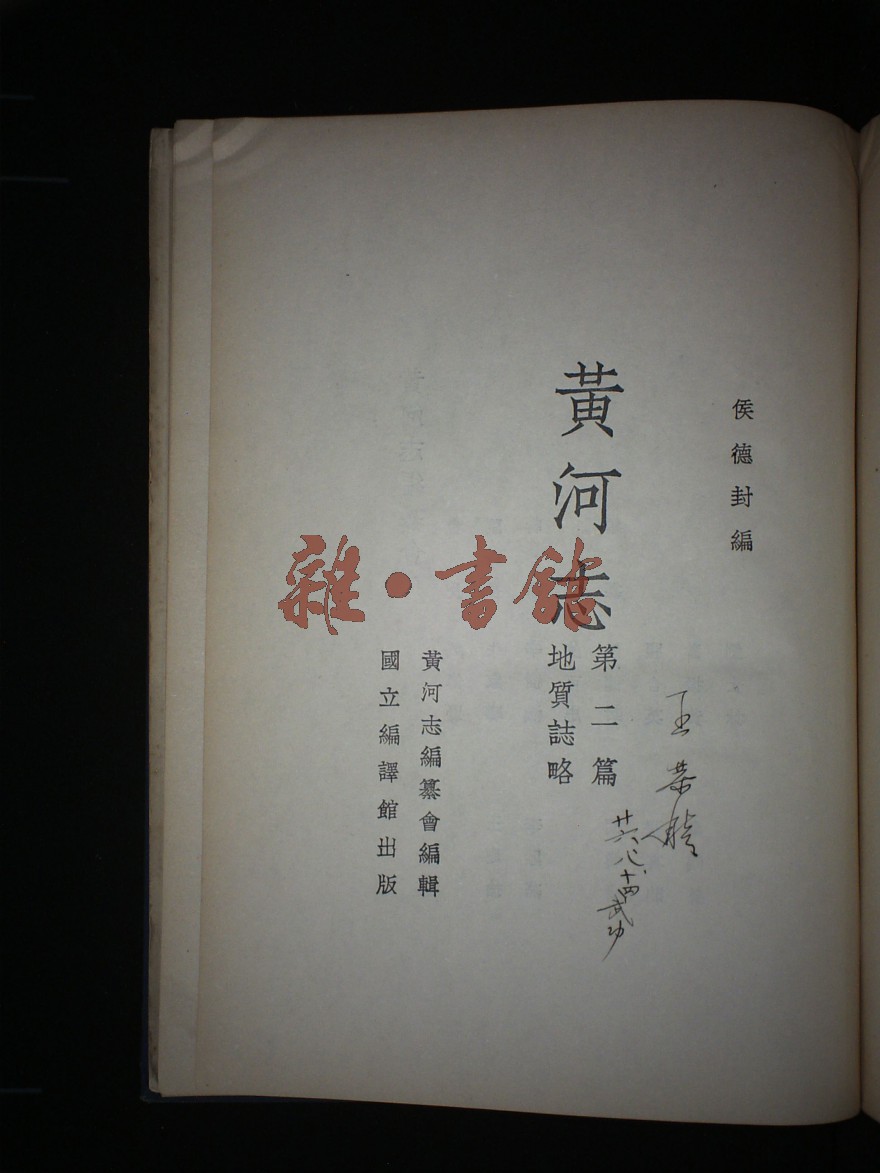 侯德封編
黃河志
第二篇
地質誌略
黃河志編纂會編輯
國立編譯館出版
王恭
廿六、八、十四武功
雜·書館